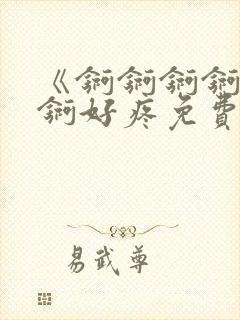 《锕锕锕锕
锕好疼免費
易武尊